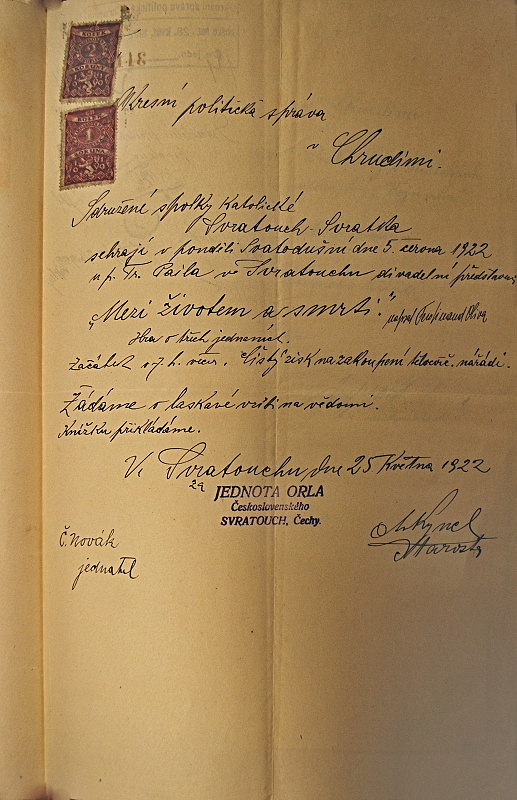 KOLEK
2
KORUNA
KOLEK
1
KORUNA
Okresní politická správa
v
Chrudimi.
Sdružené spolky katolické
Svratouch-Svratka
sehrají v pondělí Svatodušní dne 5. června 1922
u p. Fr. Pavla ve Svratouchu divadelní představení
"Mezi životem a smrtí." napsal Ferdinand Oliva
Hra o třech jednáních.
Začátek o 7. h. več. Čistý zisk na zakoupení tělocvič. nářadí.
Žádáme o laskavé vzíti na vědomí.
Knížku přikládáme.
Ve Svratouchu dne 25 Května 1922
za
JEDNOTA ORLA
Československého
SVRATOUCH, Čechy.
Č. Novák
jednatel
Starosta